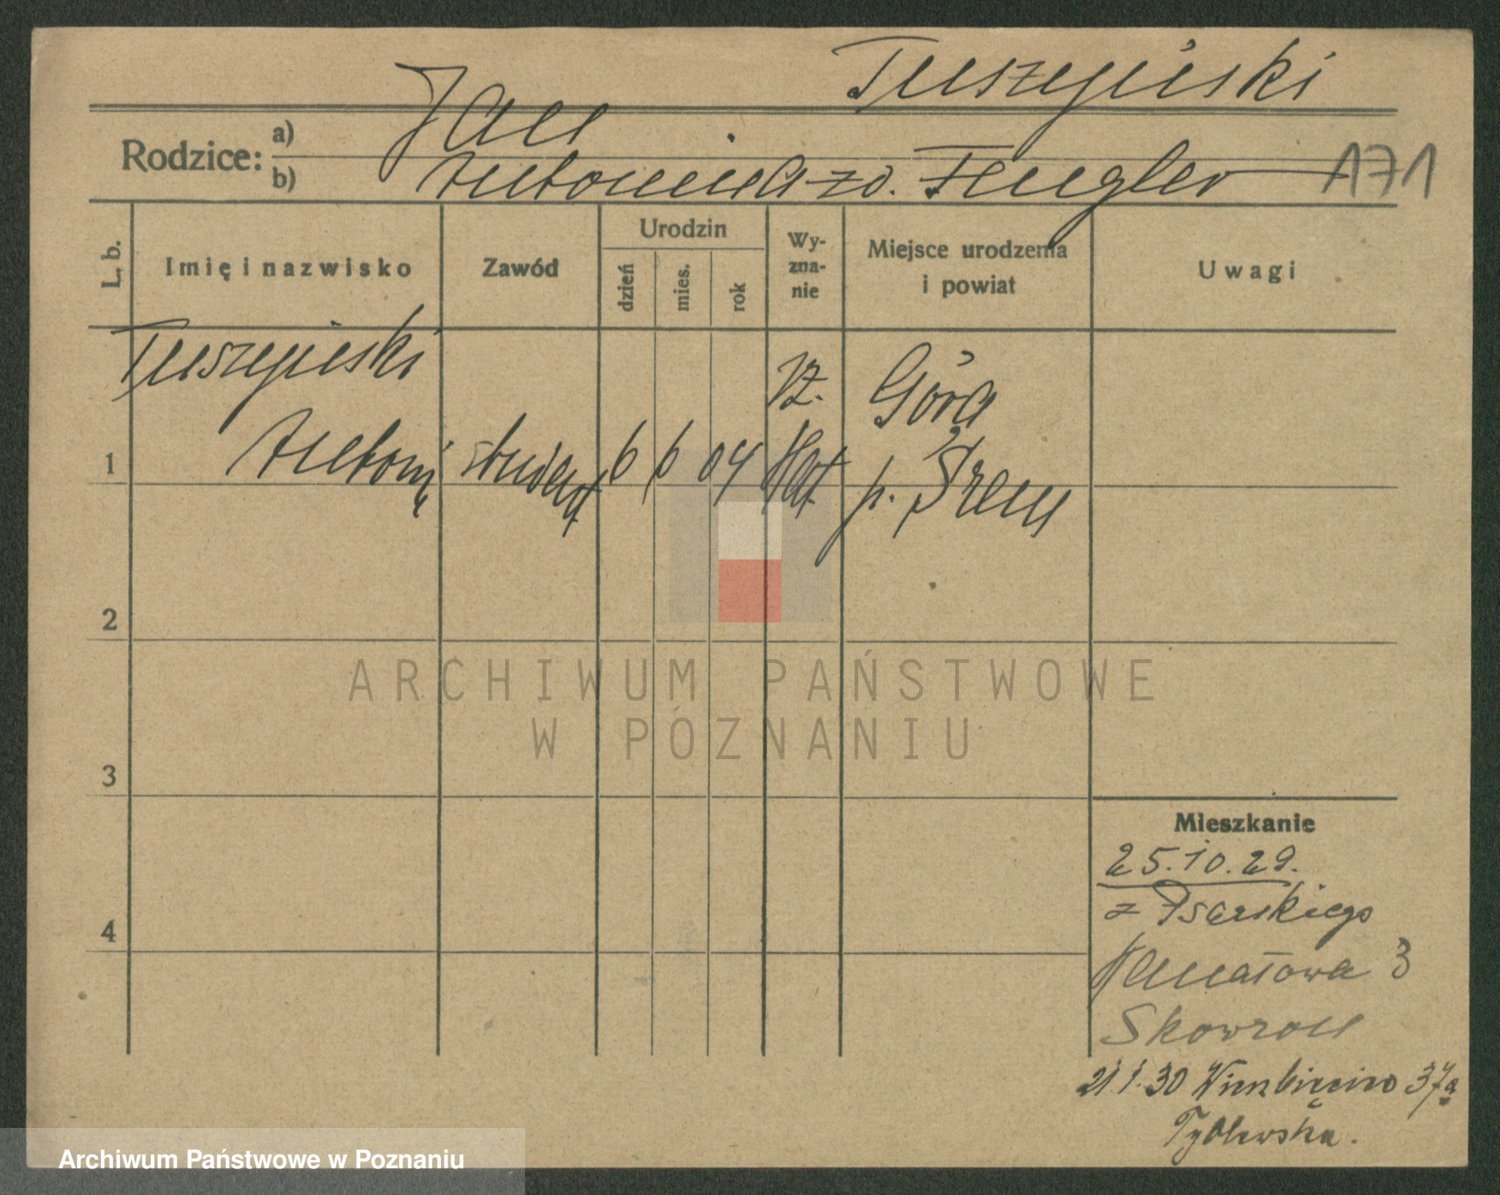 Tuszyński
Rodzice:
a) Jan
b) Antonina zd. Fengler
171
L. b.
Imię i nazwisko
Zawód
Urodzin
dzień
mies.
rok
Wy-
zna-
nie
Miejsce urodzenia
i powiat
Uwagi
Tuszyński
Antoni
student
6 6 04
rz.
kat
Góra
p. Śrem
1
2
3
4
ARCHIWUM PAŃSTWOWE
W POZNANIU
Mieszkanie
25.10.29.
z Psarskiego
Kanałowa 3
Skowron
21.1.30 Wierzbięcice 37a
Archiwum Państwowe w Poznaniu